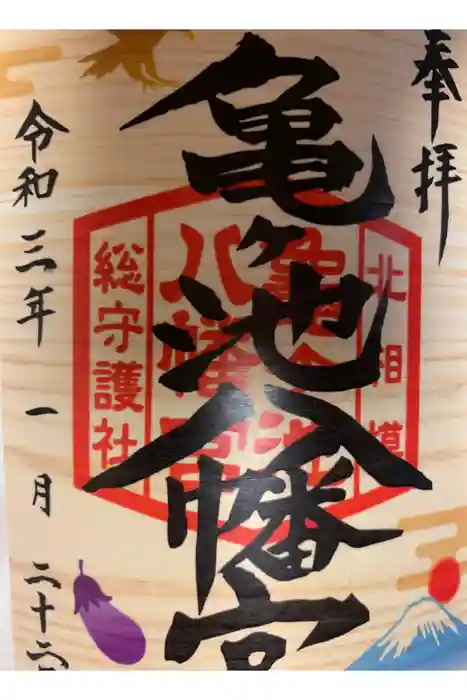 奉拝
亀ヶ池八幡宮
北相模
亀ヶ池
八幡宮
総守護社
令和三年一月二十六